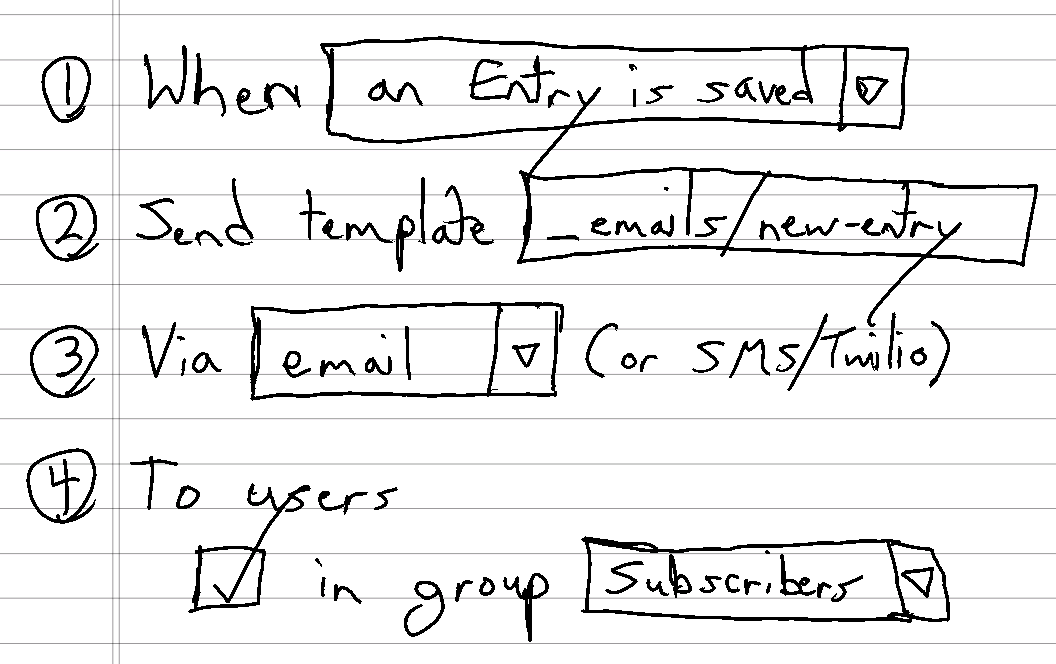 ① When an Entry is saved
② Send template _emails/new-entry
③ Via email (or SMS/Twilio)
④ To users
in group Subscribers